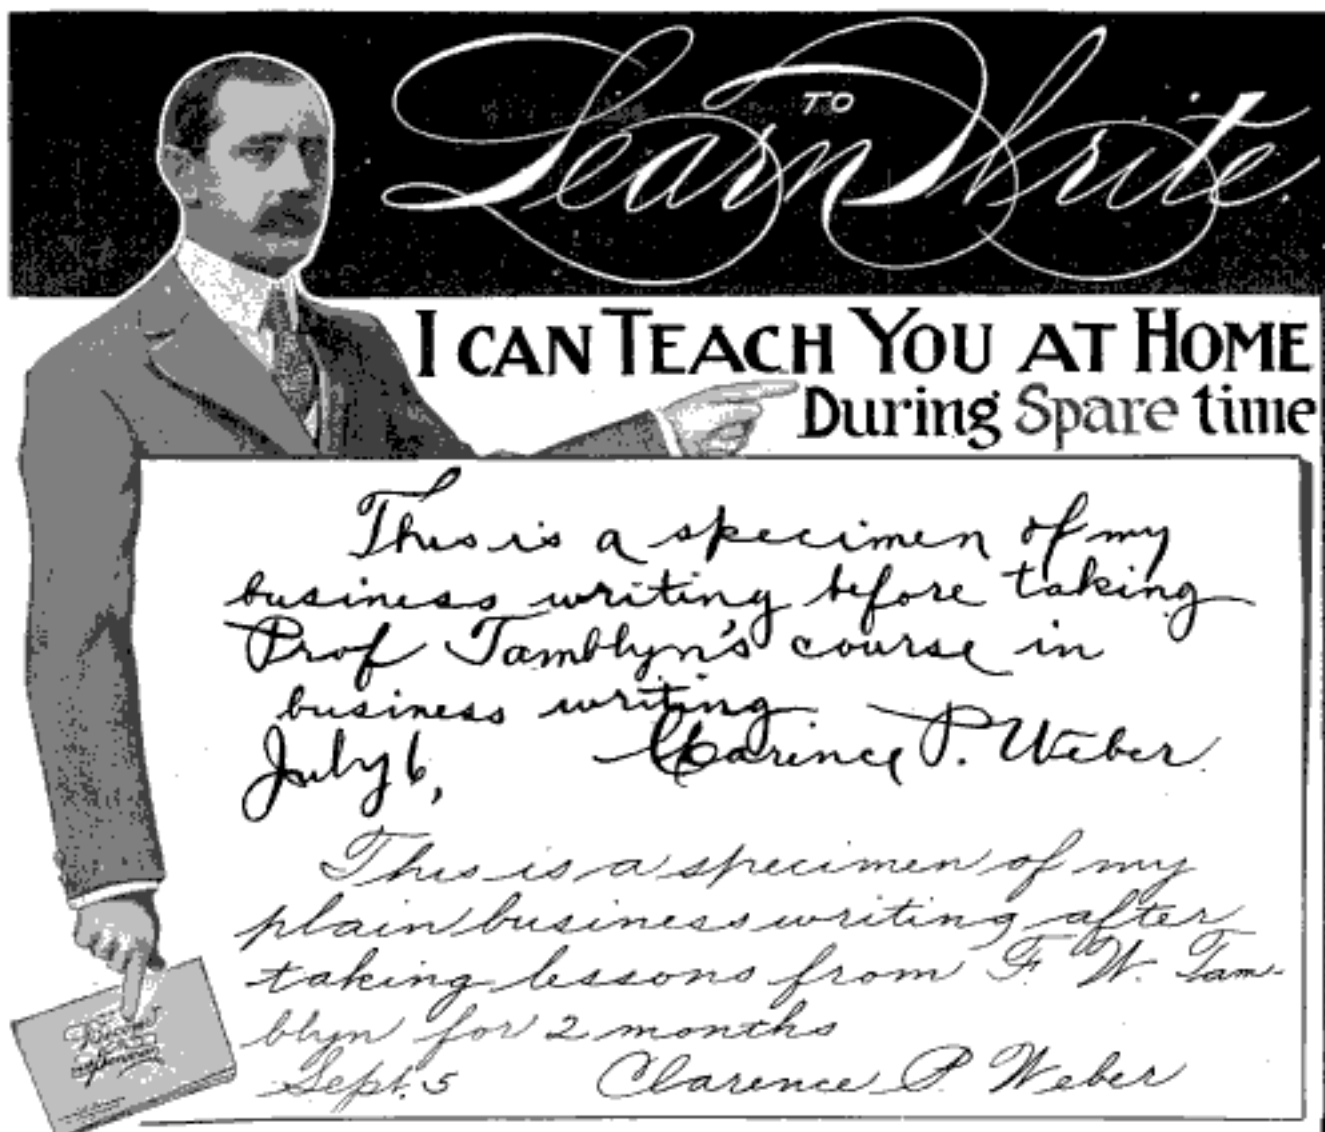 Learn to Write.
I CAN TEACH YOU AT HOME
During Spare time
This is a specimen of my
business writing before taking
Prof Tamblyn's course in
business writing
July 6, Clarence P. Weber.
This is a specimen of my
plain business writing after
taking lessons from F. W. Tam-
blyn for 2 months
Sept. 5 Clarence P. Weber